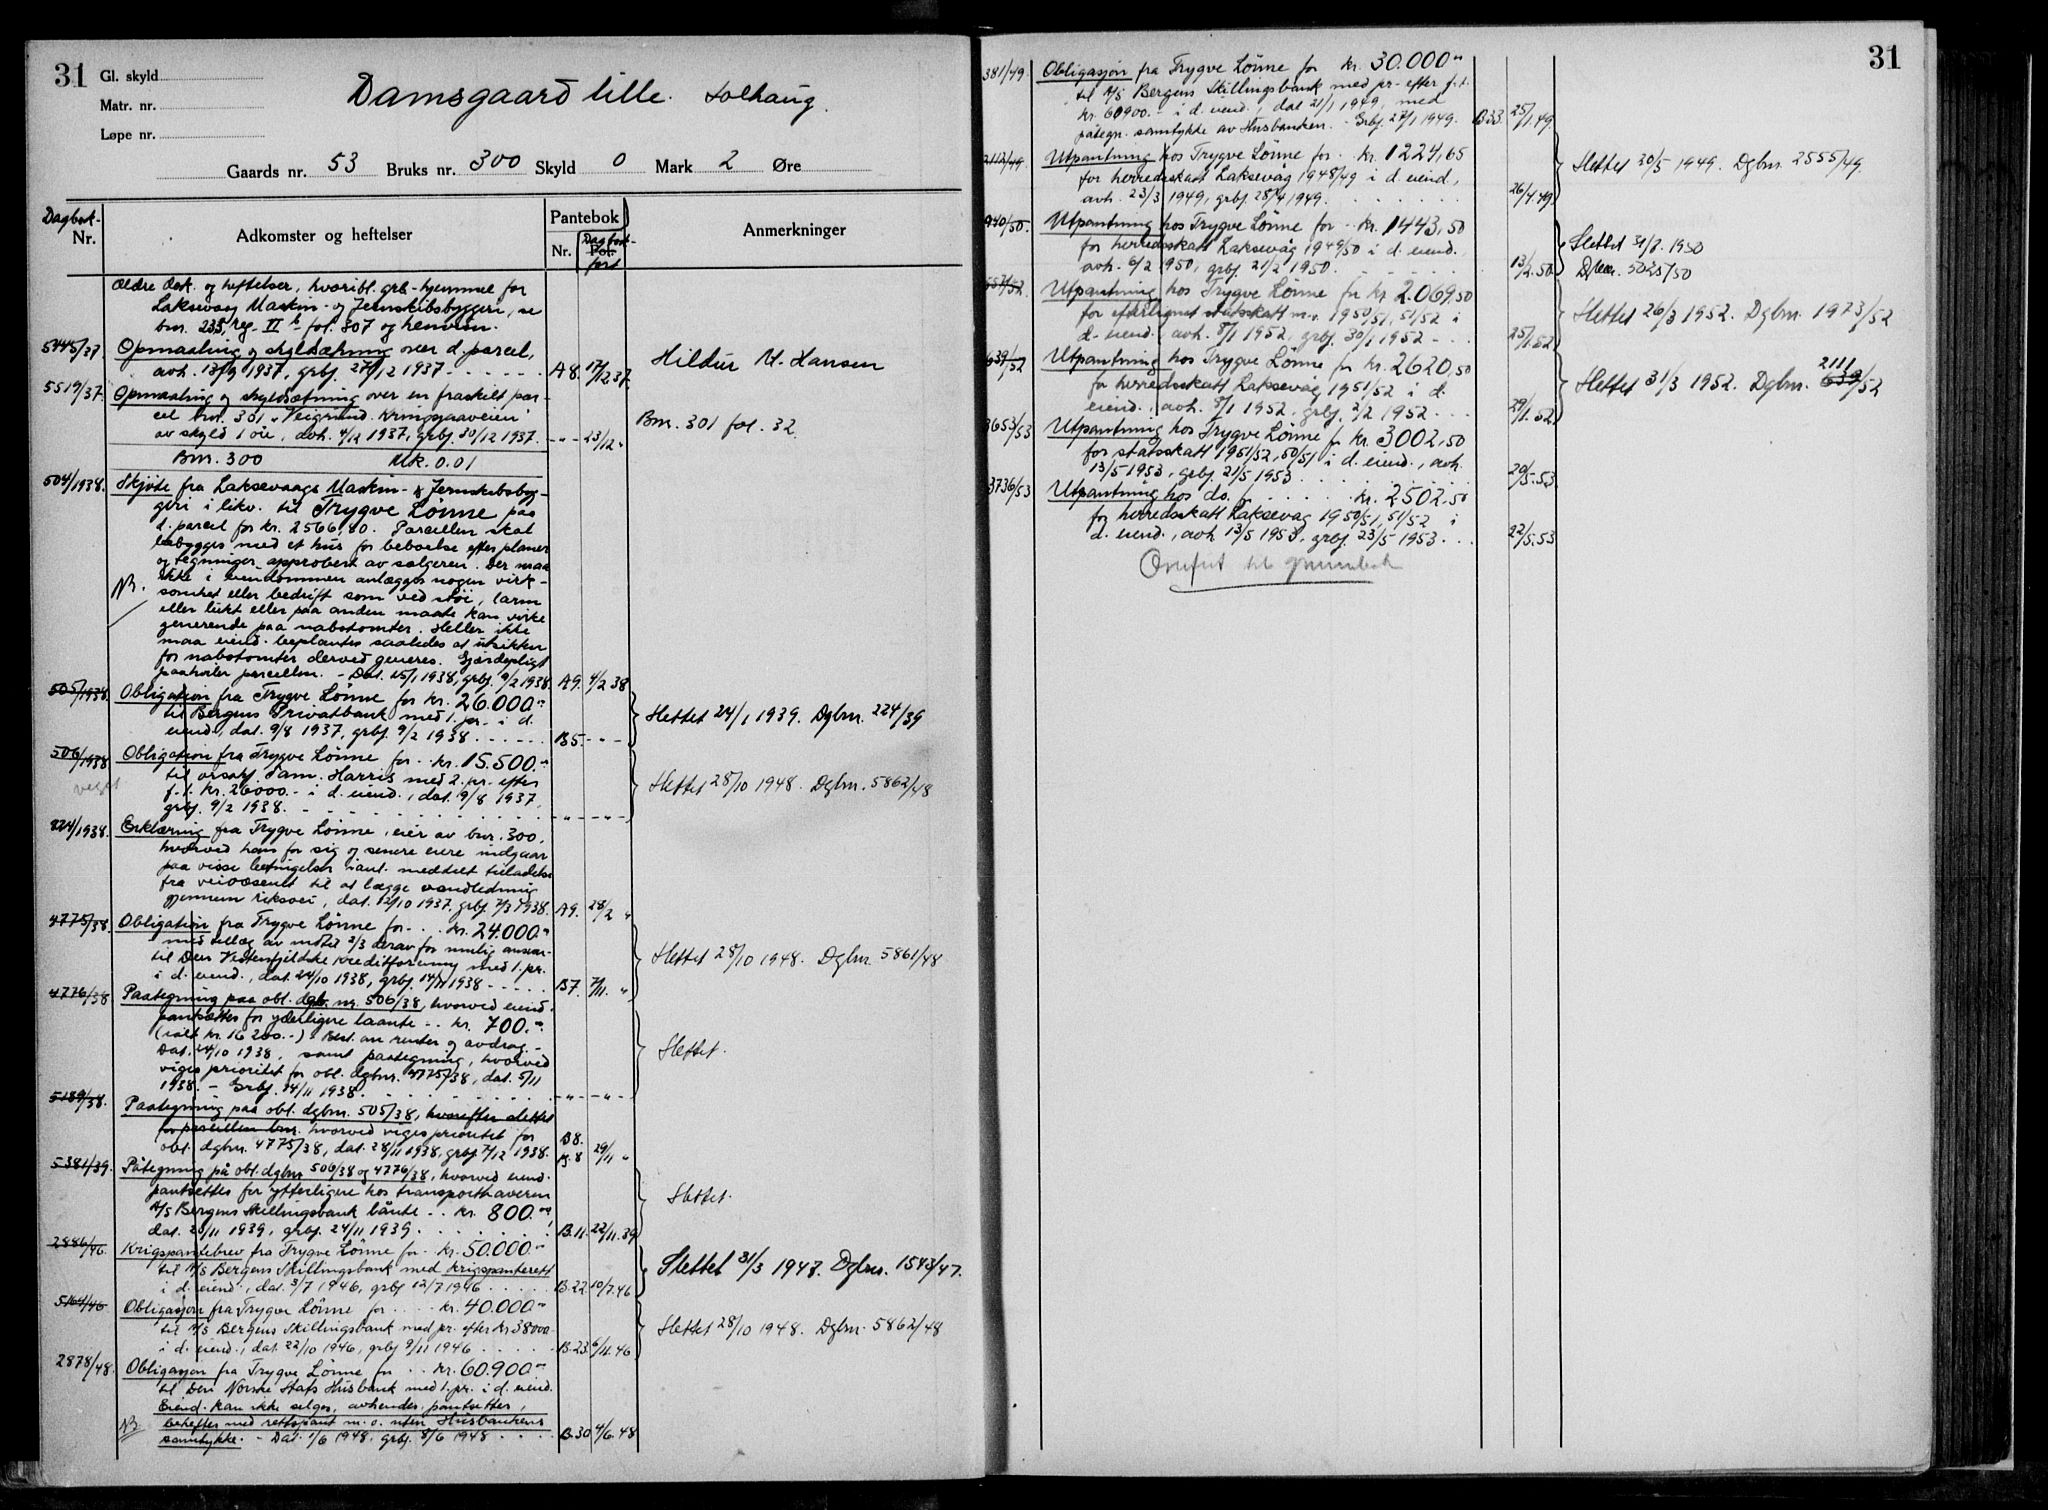 31
Gl. skyld
Matr. nr.
Løpe nr.
Damsgaard lille. Solhaug.
Gaards nr. 53 Bruks nr. 300 Skyld 0 Mark 2 Øre
Dagbok-
Nr.
Adkomster og heftelser
Pantebok
Nr. Dagbok-
Fol.
ført
Anmerkninger
Ældre dok. og heftelser, hvoribl. grb-hjemmel for
Laksevaag Maskin- og Jernskibsbyggeri, se
bnr. 235, reg. II fol. 307 og henvisn.
5445/37. Opmaaling og skyldsætning over d. parcel,
avh. 13/9 1937, grbf. 27/12 1937 - A8. 17/12 37. Hildur M. Hansen
5519/37. Opmaaling og skyldsætning over en fraskilt par-
cel bnr. 301 "Veigrund. Kringsjaaveien"
av skyld 1 øre, avh. 4/12 1937, grbf. 30/12 1937. -"- 23/12 " Bnr. 301 fol. 32.
Bnr. 300 Mk. 0.01
504/1938. Skjøte fra Laksevaags Maskin- & Jernskibsbyg-
geri i likv. til Trygve Lönne paa
d. parcel for kr. 2566,80. Parcellen skal
bebygges med et hus for beboelse efter planer
og tegninger approbert av sælgeren. Der maa
ikke i eiendommen anlægges nogen virk-
NB. somhet eller bedrift som ved støi, larm
eller lukt eller paa anden maate kan virke
generende paa nabotomter. Heller ikke
maa eiend. beplantes saaledes at utsikken
for nabotomter derved generes. Gjærdepligt
paahviler parcellen. - Dat. 15/1 1938, grbf. 9/2 1938. A9. 4/2 38
505/1938. Obligation fra Trygve Lönne for kr. 26.000.-
til Bergens Privatbank med 1. pr. i d.
eiend., dat. 9/8 1937, grbf. 9/2 1938 B5. -"- Slettet 24/1 1939. Dgbnr. 224/39
506/1938 Obligation fra Trygve Lönne for kr. 15.500.-
til Sam. Harris med 2. pr. efter
f.t. kr. 26000.- i d. eiend., dat. 9/8 1937,
grbf. 9/2 1938. - " - " - Slettet 28/10 1948. Dgbnr. 5862/48
824/1938. Erklæring fra Trygve Lönne, eier av bnr. 300,
hvorved han for sig og senere eiere indgaar
paa visse betingelser iant. meddelt tilladelse
fra veivæsenet til at lægge vandledning
gjennem riksvei, dat. 12/10 1937, grbf. 7/3 1938. A9. 28/2 "
4775/38. Obligation fra Trygve Lönne for kr. 24.000.-
med tillæg av indtil 2/3 derav for mulig ansvar
til Den Vestenfjeldske Kreditforening med 1. pr.
i d. eiend., dat. 24/10 1938, grbf. 14/11 1938 B7. 7/11. " Slettet 28/10 1948. Dgbnr. 5861/48
4776/38 Paategning paa obl. dgb. nr. 506/38, hvorved eiend.
pantsættes for yderligere laante kr. 700.-
(ialt kr. 16200.-) Best. an renter og avdrag.
Dat. 24/10 1938, samt paategning, hvorved
viges prioritet for obl. dgbnr. 4775/38, dat. 5/11
1938. - Grbf. 14/11 1938 -"- -"- Slettet.
5189/38. Paategning paa obl. dgbnr. 505/38, hvorefter slettet
for parcellen bnr. hvorved viges prioritet for
obl. dgbnr. 4775/38, dat. 28/11 1938, grbf. 7/12 1938. B8. 29/11 "
5381/39. Påtegning på obl. dgbnr. 506/38 og 4776/38, hvorved eiend.
pantsettes for ytterligere hos transporthaveren
A/S Bergens Skillingsbank lånte kr. 800.-
dat. 20/11 1939, grbf. 24/11 1939 B.11. 22/11.39 Slettet.
2886/46. Krigspantebrev fra Trygve Lönne for kr. 50.000.-
til A/S Bergens Skillingsbank med krigspanterett
i d. eiend., dat. 3/7 1946, grbf. 12/7 1946 B.22. 10/7.46 Slettet 31/3 1947. Dgbnr. 1543/47.
5164/46 Obligasjon fra Trygve Lönne for kr. 40.000.-
til A/S Bergens Skillingsbank med pr. efter kr 38000.-
i d. eiend., dat. 22/10 1946, grbf. 9/11 1946 B.23. 6/11.46 Slettet 28/10 1948. Dgbnr. 5862/48
2878/48. Obligasjon fra Trygve Lönne for kr. 60.900.-
til Den Norske Stats Husbank med 1. pr. i d. eiend.
Eiend. kan ikke selges, avhendes, pantsettes,
NB. beheftes med rettspant m.v. uten Husbankens
samtykke. - Dat. 1/6 1948. grbf. 8/6 1948 B.30 4/6.48
31
381/49. Obligasjon fra Trygve Lönne for kr. 30.000.-
til A/S Bergens Skillingsbank med pr. efter f.t.
kr. 60900.- i d. eiend., dat. 21/1 1949, med
påtegn. samtykke av Husbanken. - Grbf. 27/1 1949. B33. 25/1.49.
2112/49. Utpantning hos Trygve Lönne for kr. 1224,65
for herredsskatt Laksevåg 1948/49 i d. eiend.,
avh. 23/3 1949, grbf. 28/4 1949. 26/4.49 Slettet 30/5 1949. Dgbnr. 2555/49.
940/50. Utpantning hos Trygve Lönne for kr. 1443,50
for herredsskatt Laksevåg 1949/50 i d. eiend.
avh. 6/2 1950, grbf. 21/2 1950. 13/2.50 Slettet 31/8. 1950
Dgbnr. 5025/50
557/52 Utpantning hos Trygve Lönne for kr 2.069,50
for efterlignet statsskatt m.v. 1950/51, 51/52 i
d. eiend. avh. 8/1 1952, grbf. 30/1 1952 25/1.52 Slettet 26/3 1952. Dgbnr. 1973/52
639/52 Utpantning hos Trygve Lönne for kr. 2620,50
for herredsskatt Laksevåg 1951/52 i d.
eiend., avh. 8/1 1952, grbf. 2/2 1952 29/1.52 Slettet 31/3 1952. Dgbnr. 2111 639/52
3653/53 Utpantning hos Trygve Lönne for kr. 3002,50
for statsskatt 1951/52, 50/51 i d. eiend., avh.
13/5 1953, grbf. 21/5 1953 20/5.53
3736/53 Utpantning hos do. kr. 2502,50
for herredsskatt Laksevåg 1950/51, 51/52 i
d. eiend., avh 13/5 1953, grbf. 23/5 1953. 22/5.53
Overført til grunnbok